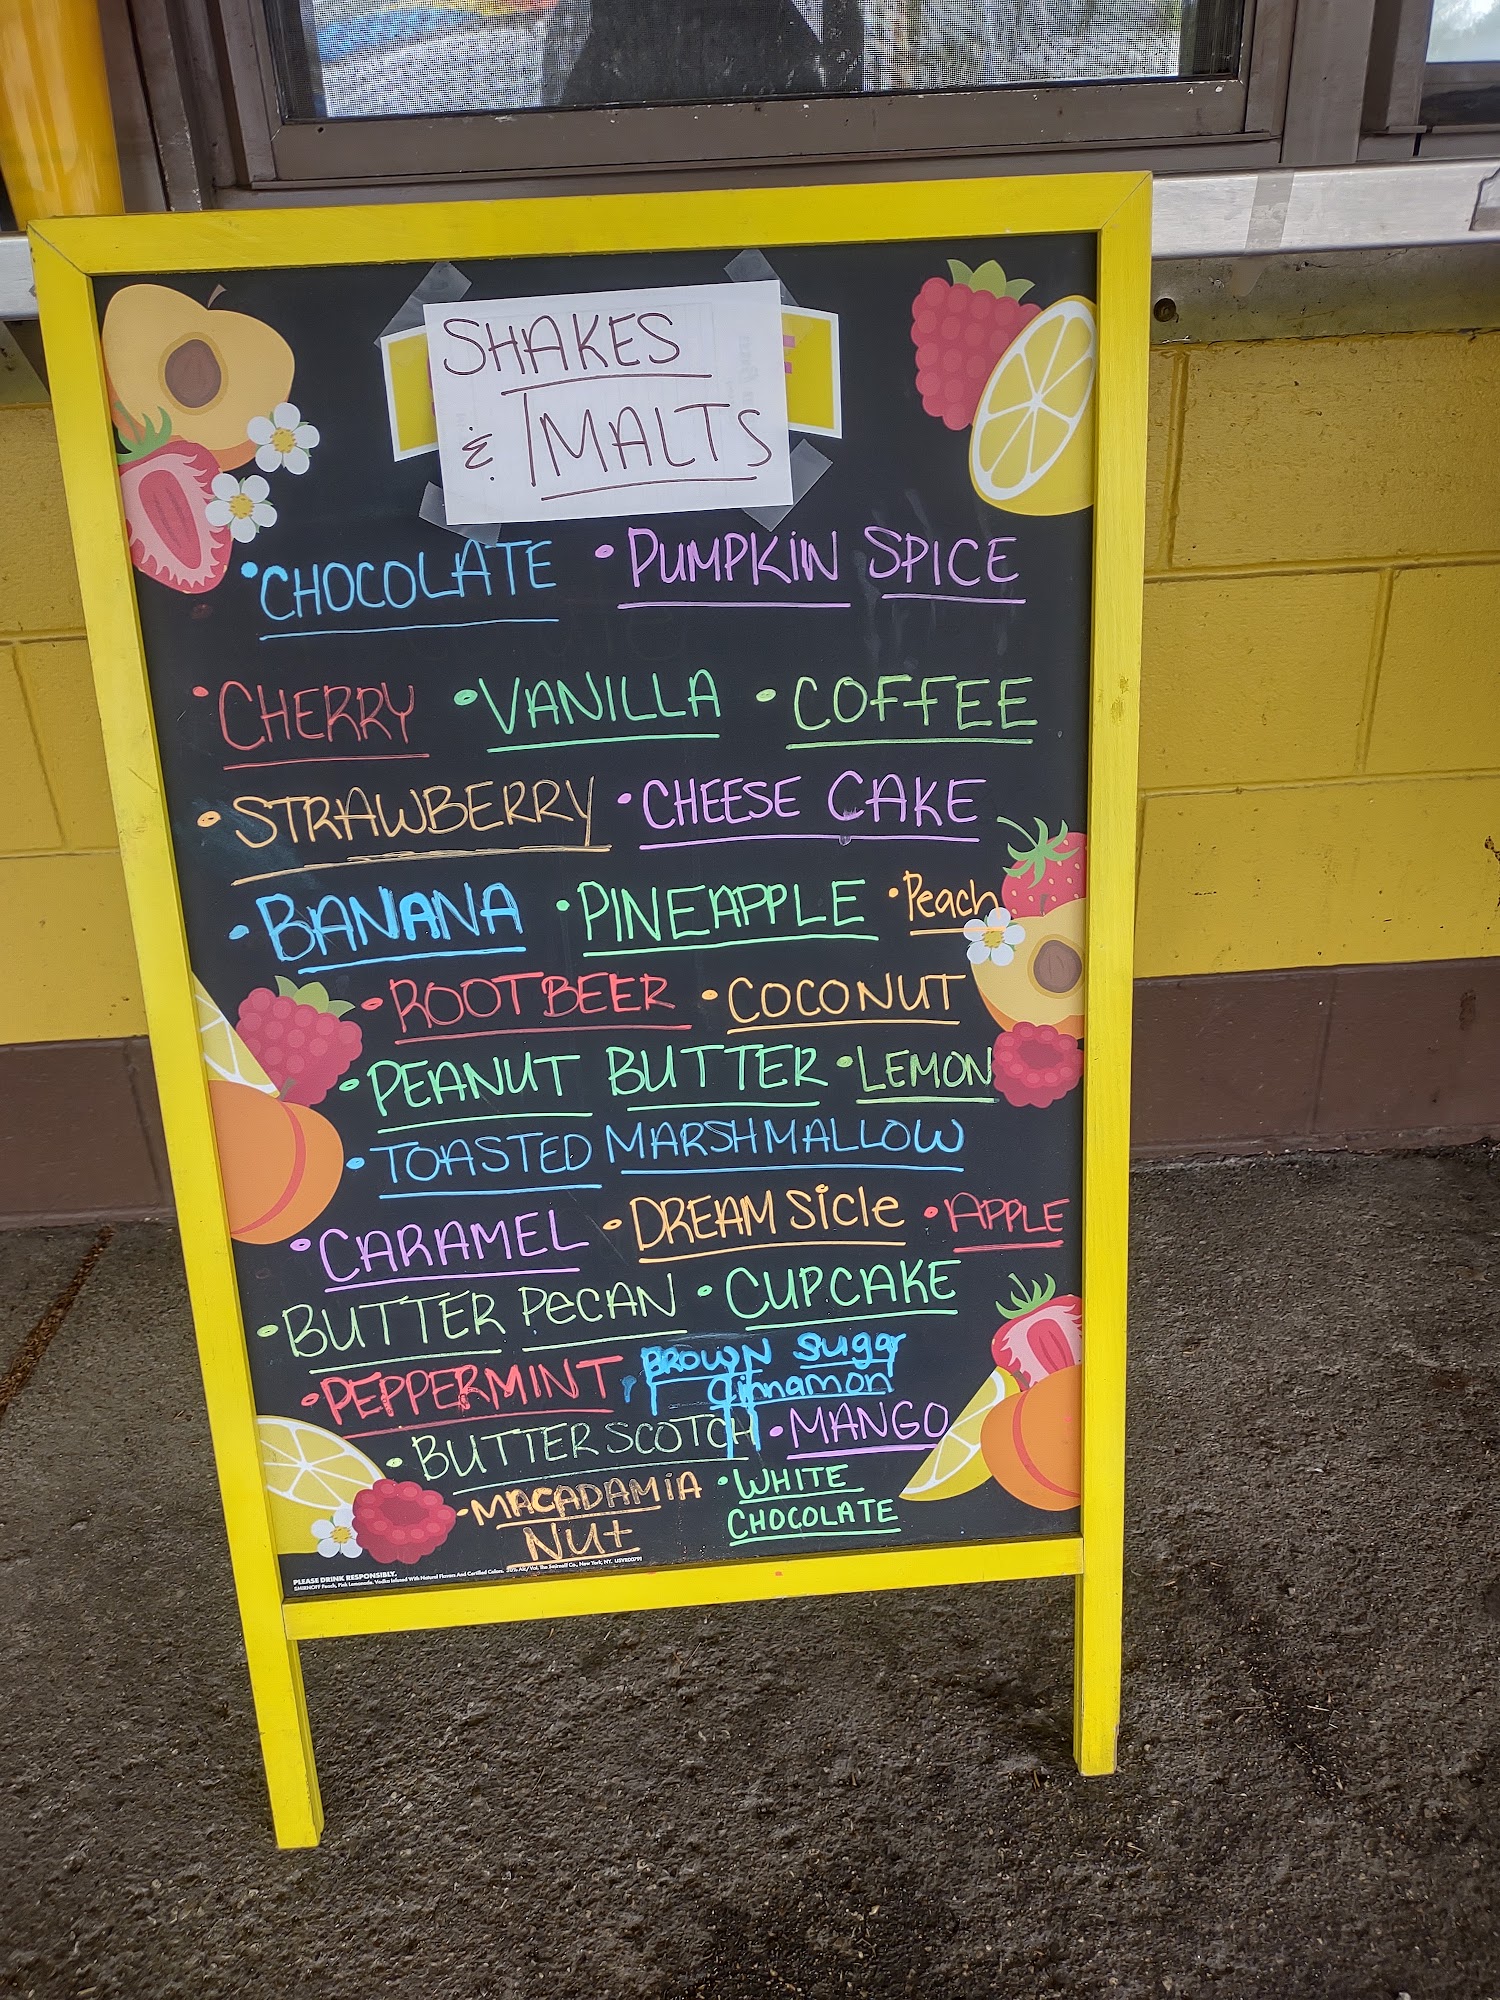 SHAKES
& MALTS
•CHOCOLATE •PUMPKIN SPICE
•CHERRY •VANILLA •COFFEE
•STRAWBERRY •CHEESE CAKE
•BANANA •PINEAPPLE •Peach
•ROOTBEER •COCONUT
•PEANUT BUTTER •LEMON
•TOASTED MARSHMALLOW
•CARAMEL •DREAMSicle •APPLE
•BUTTER PECAN •CUPCAKE
•PEPPERMINT •BROWN Sugar
Cinnamon
•BUTTERSCOTCH •MANGO
•MACADAMIA
NUt
•WHITE
CHOCOLATE
PLEASE DRINK RESPONSIBLY.
SMIRNOFF Peach, Pink Lemonade. Vodka Infused With Natural Flavors And Certified Colors. 30% Alc/Vol. The Smirnoff Co., New York, NY.